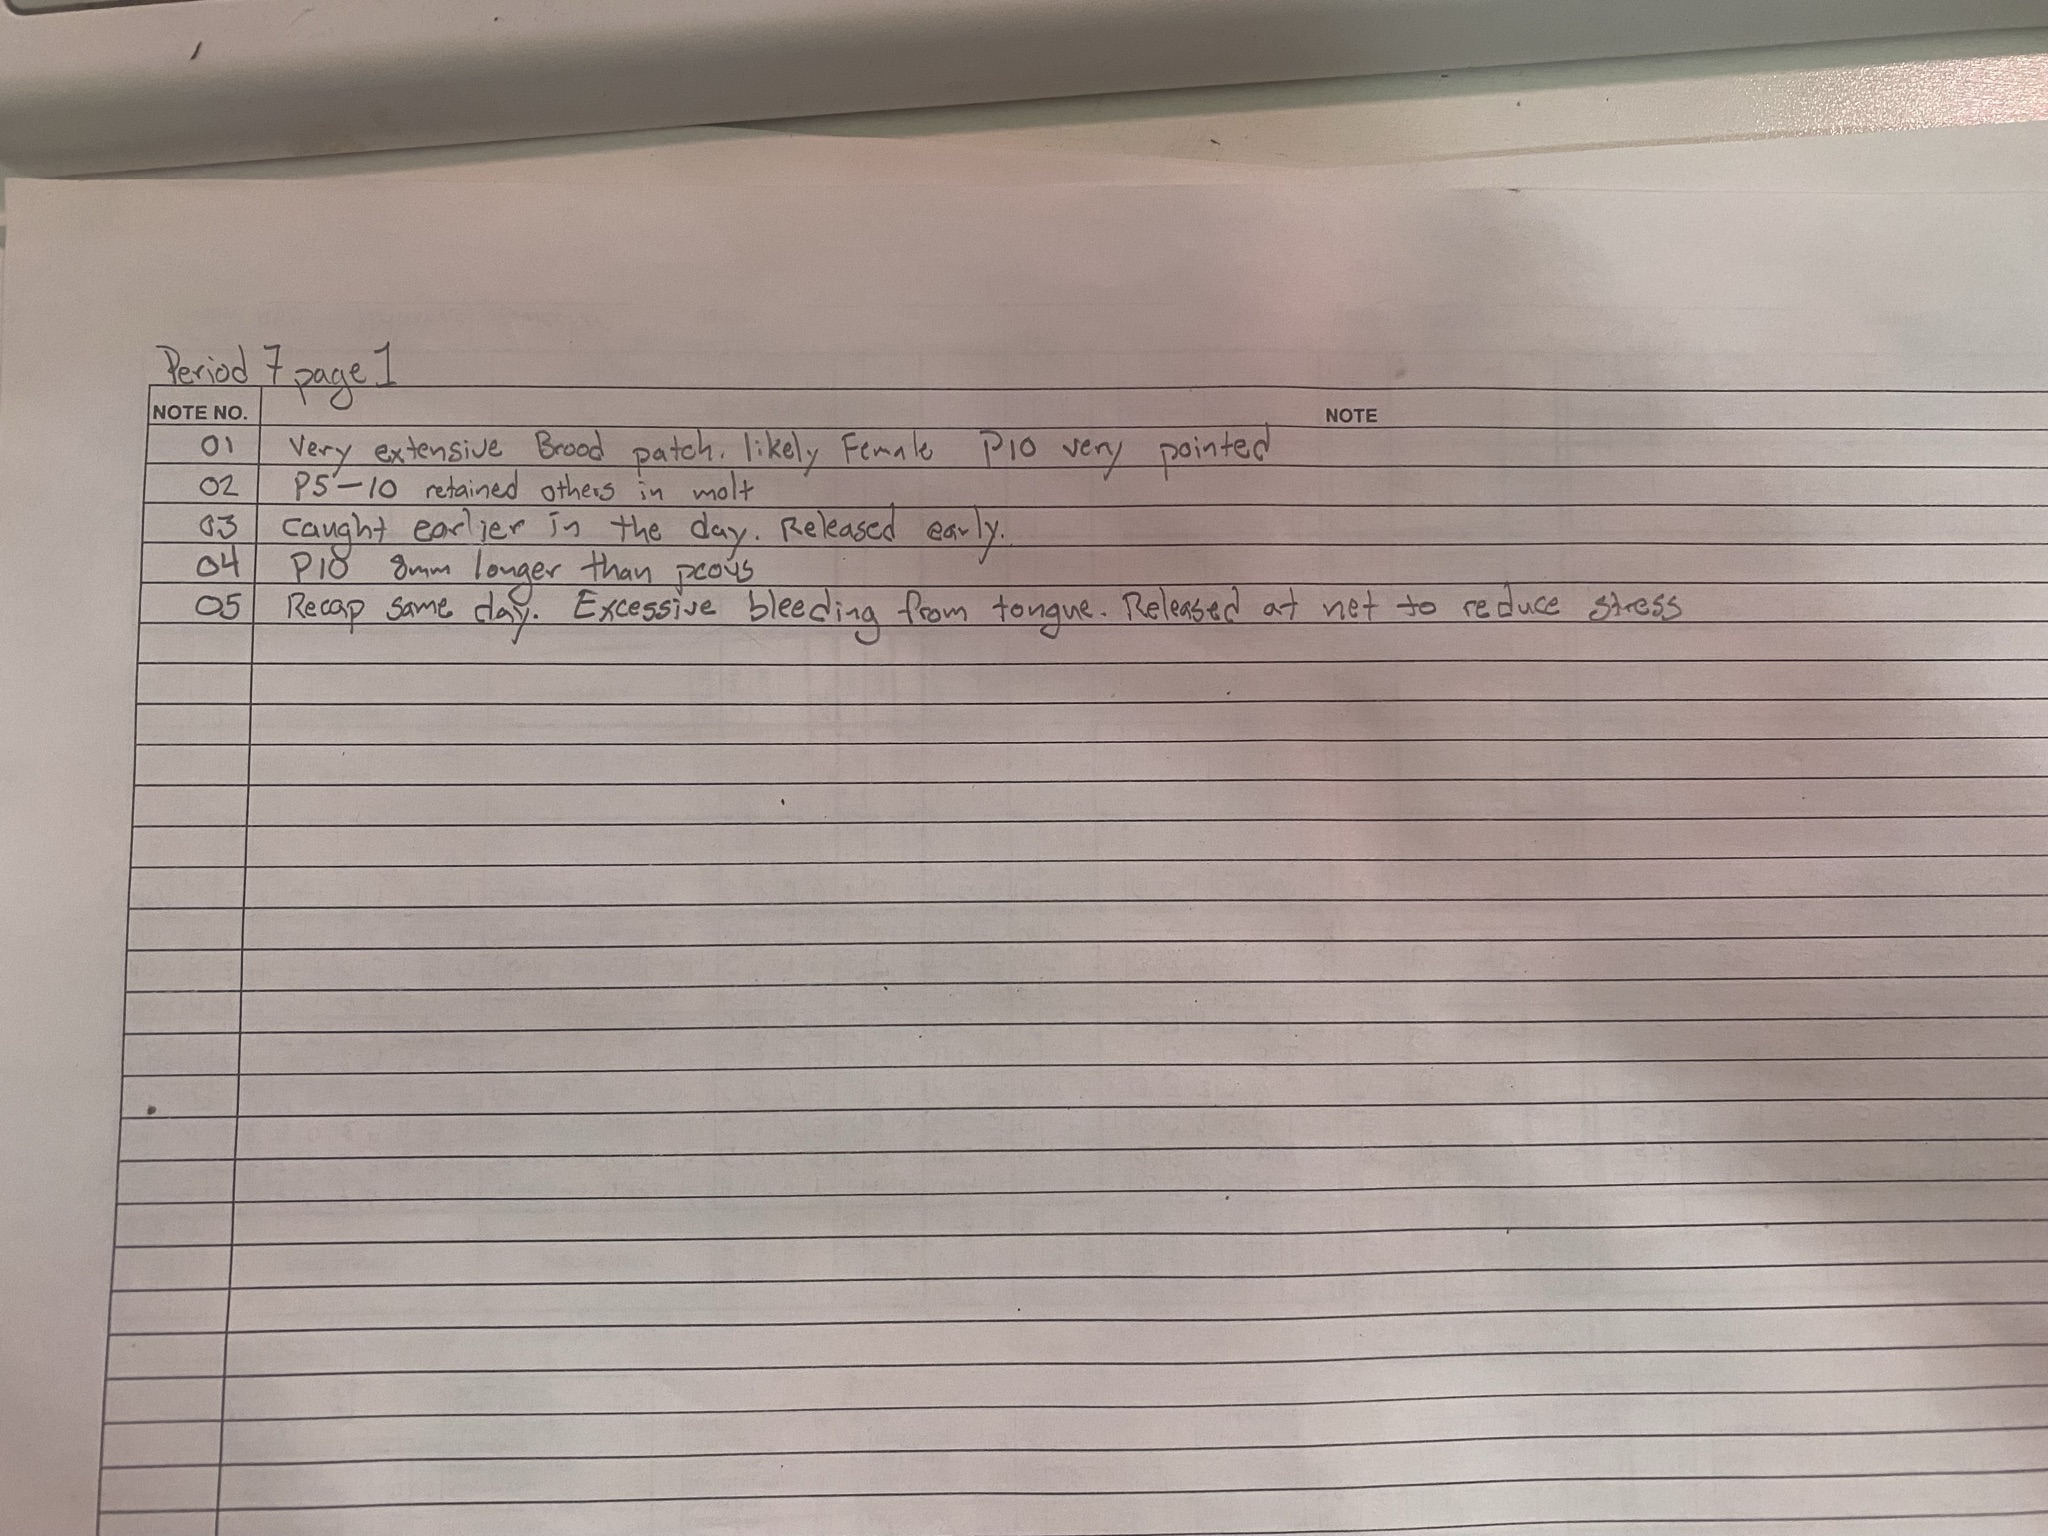 Period 7 page 1
NOTE NO. NOTE
01 Very extensive Brood patch. likely Female P10 very pointed
02 P5-10 retained others in molt
03 caught earlier in the day. Released early.
04 P10 8mm longer than pcovs
05 Recap same day. Excessive bleeding from tongue. Released at net to reduce stress